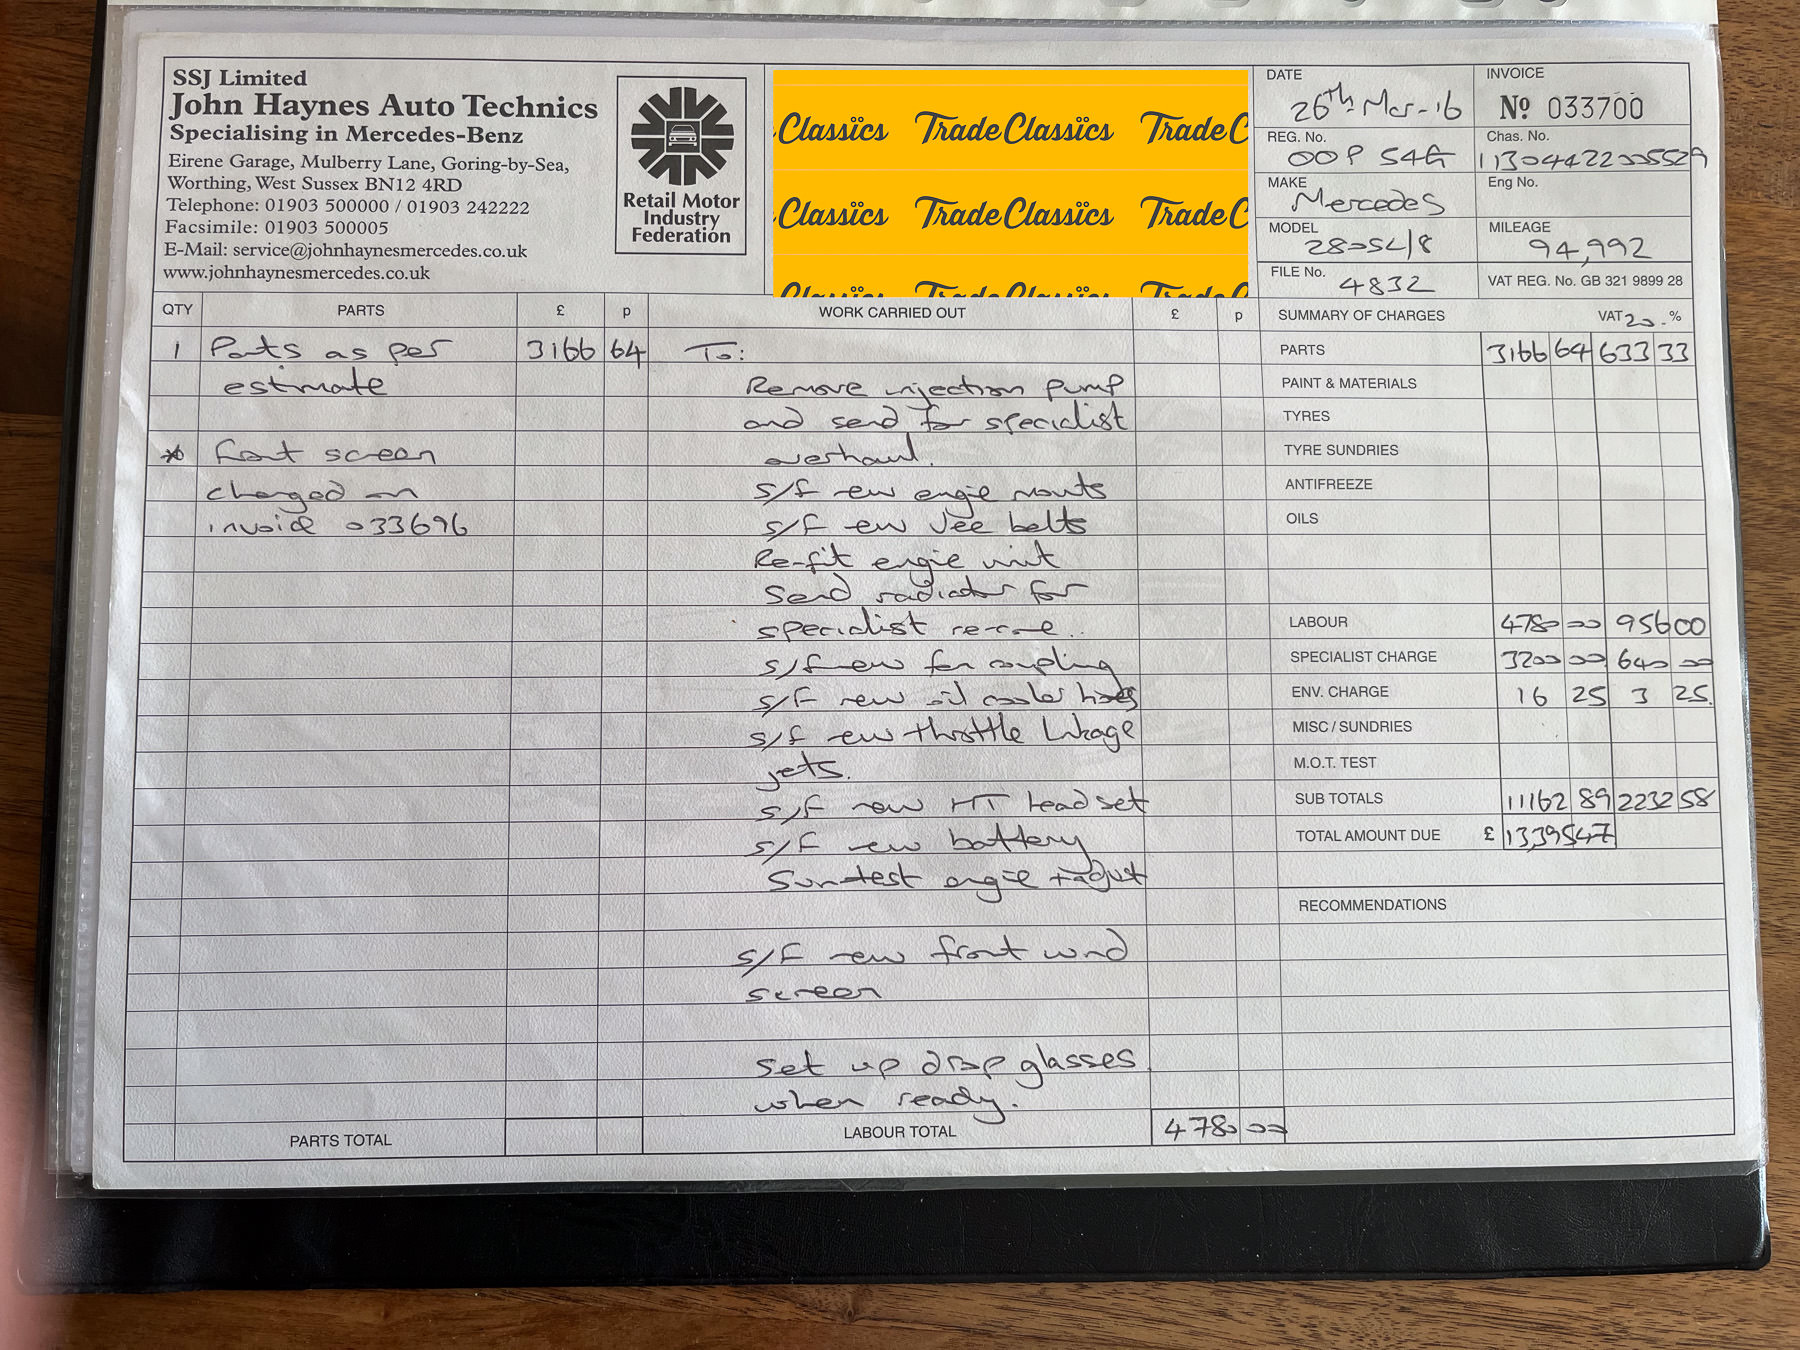 SSJ Limited
John Haynes Auto Technics
Specialising in Mercedes-Benz
Eirene Garage, Mulberry Lane, Goring-by-Sea,
Worthing, West Sussex BN12 4RD
Telephone: 01903 500000 / 01903 242222
Facsimile: 01903 500005
E-Mail: service@johnhaynesmercedes.co.uk
www.johnhaynesmercedes.co.uk
Retail Motor
Industry
Federation
Classics TradeClassics TradeC
Classics TradeClassics TradeC
Classics TradeClassics TradeC
DATE 26th Mar-16
INVOICE Nº 033700
REG. No. OOP 54G
Chas. No. 11304422005529
MAKE Mercedes
Eng No.
MODEL 280SL/8
MILEAGE 94,992
FILE No. 4832
VAT REG. No. GB 321 9899 28
QTY PARTS £ p WORK CARRIED OUT £ p SUMMARY OF CHARGES VAT 20.%
1 Parts as per 3166 64
estimate
* front screen
charged on
invoice 033696
PARTS TOTAL
To:
Remove injection pump
and send for specialist
overhaul.
s/f new engie mouts
s/f new Vee belts
Re-fit engie unit
Send radiator for
specialist re-core..
s/f new fan coupling
s/f new oil cooler hoses
s/f new throttle linkage
jets.
s/f new HT lead set
s/f new battery
Sun-test engie + adjust
s/f new front wind
screen
set up drop glasses
when ready.
LABOUR TOTAL 4780 00
PARTS 3166 64 633 33
PAINT & MATERIALS
TYRES
TYRE SUNDRIES
ANTIFREEZE
OILS
LABOUR 4780 00 956 00
SPECIALIST CHARGE 3200 00 640 00
ENV. CHARGE 16 25 3 25.
MISC / SUNDRIES
M.O.T. TEST
SUB TOTALS 11162 89 2232 58
TOTAL AMOUNT DUE £ 13,395 47
RECOMMENDATIONS